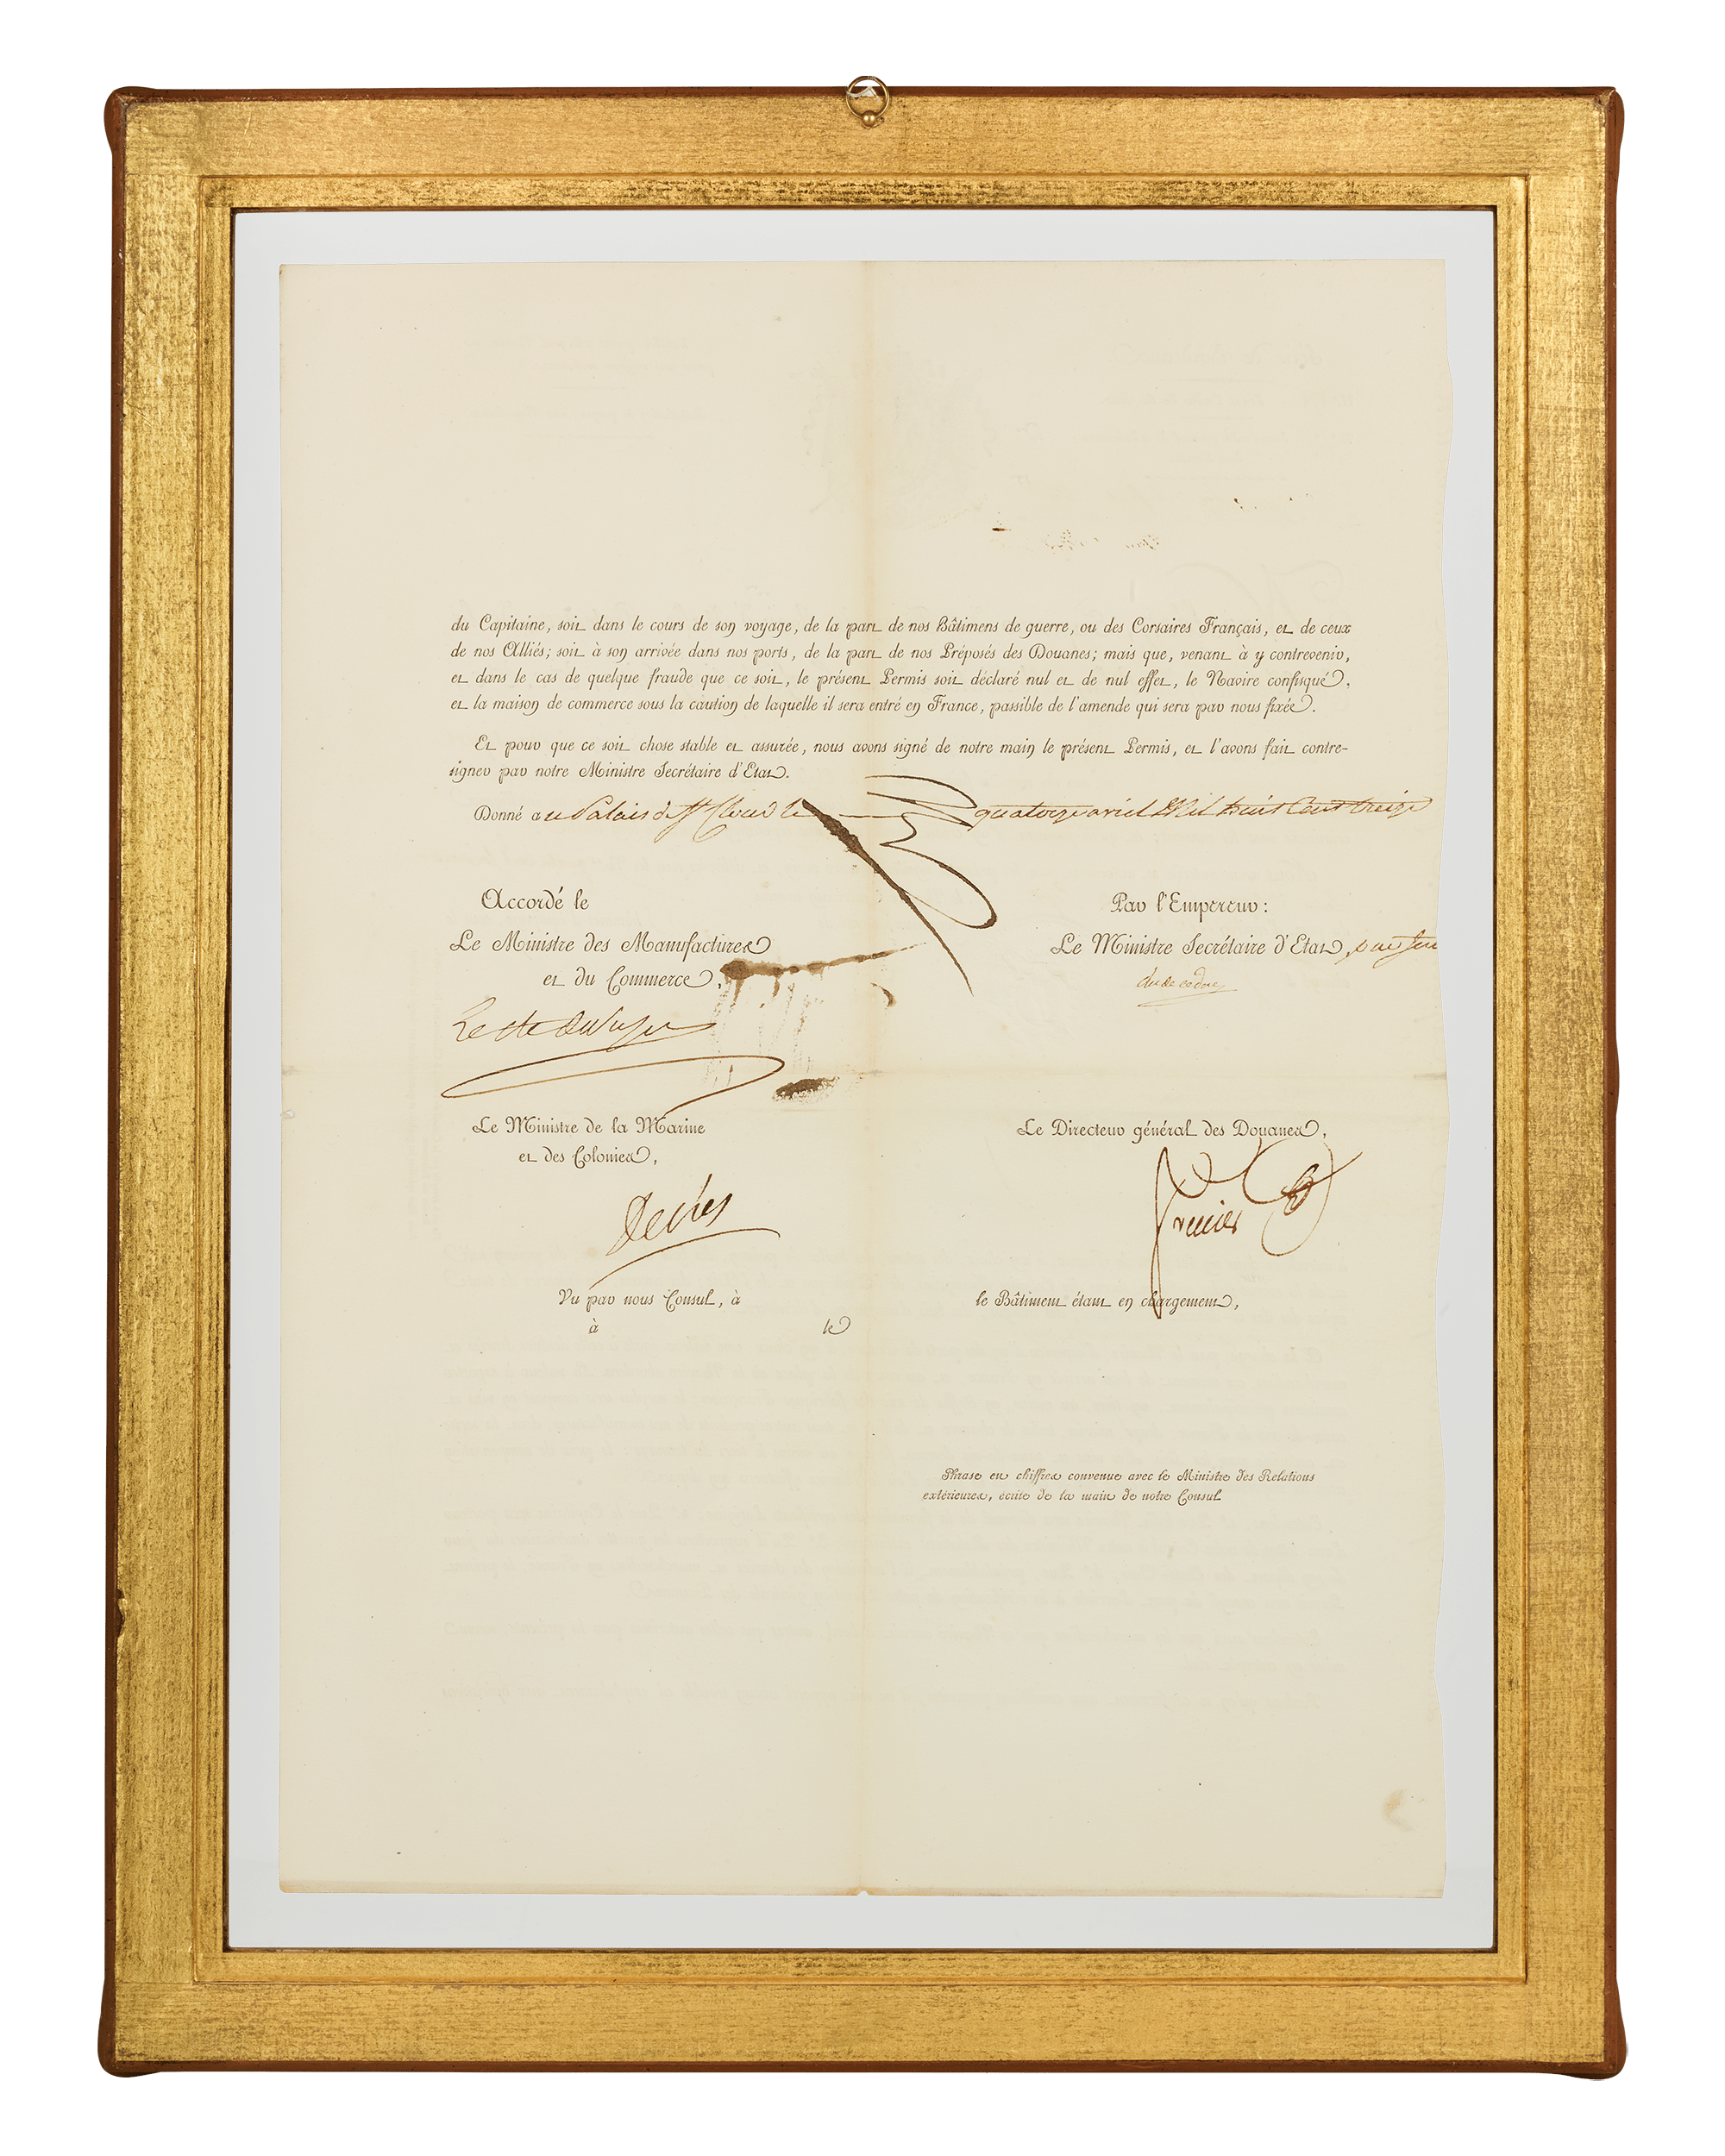 du Capitaine, soit dans le cours de son voyage, de la part de nos Bâtimens de guerre, ou des Corsaires Français, et de ceux
de nos Alliés; soit à son arrivée dans nos ports, de la part de nos Préposés des Douanes; mais que, venant à y contrevenir,
et dans le cas de quelque fraude que ce soit, le présent Permis soit déclaré nul et de nul effet, le Navire confisqué,
et la maison de commerce sous la caution de laquelle il sera entré en France, passible de l'amende qui sera par nous fixée.
Et pour que ce soit chose stable et assurée, nous avons signé de notre main le présent Permis, et l'avons fait contre-
signer par notre Ministre Secrétaire d'Etat.
Donné au Palais de St Cloud le quatorze avril Mil huit Cent treize
Accordé le
Par l'Empereur:
Le Ministre des Manufactures
et du Commerce,
Le Ministre Secrétaire d'Etat,
Le Ministre de la Marine
et des Colonies,
Decrès
Le Directeur général des Douanes,
Vu par nous Consul, à
le Bâtiment étant en chargement,
à le
Phrase en chiffres convenue avec le Ministre des Relations
extérieures, écrite de la main de notre Consul